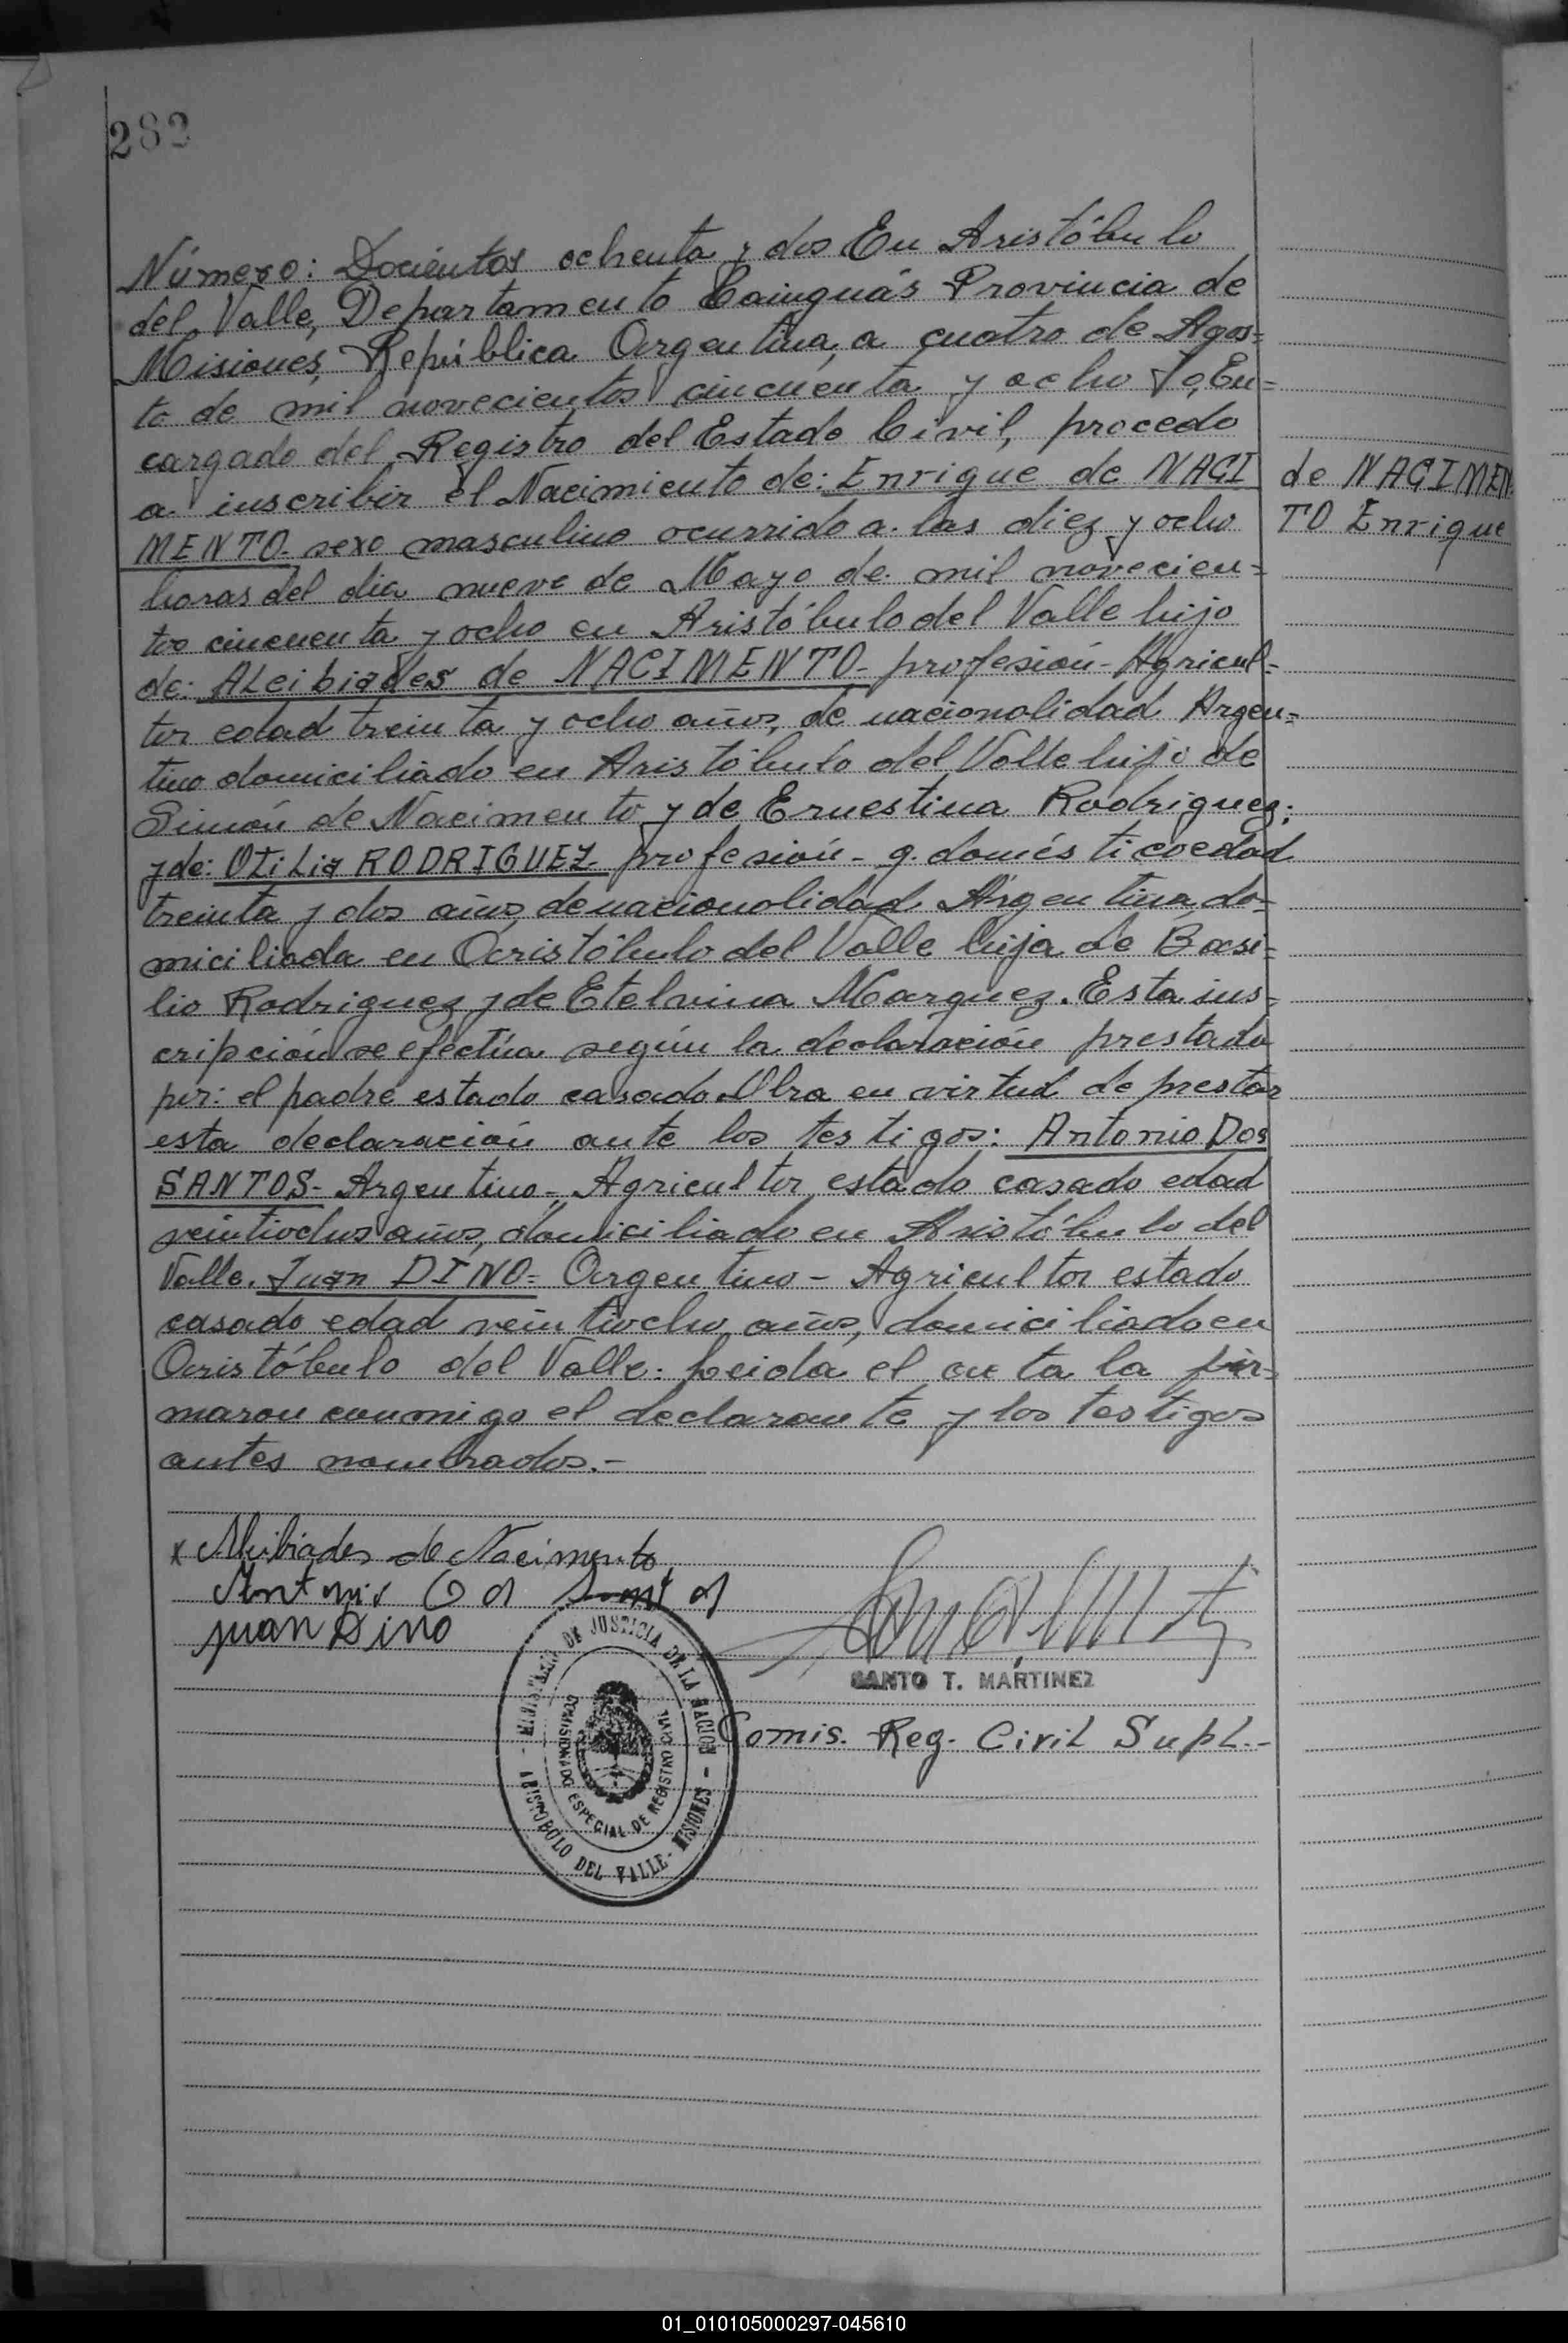 282
Número: Docientos ochenta y dos En Aristóbulo
del Valle, Departamento Cainguás Provincia de
Misiones, República Argentina, a cuatro de Agos=
to de mil novecientos cincuenta y ocho Yo, En=
cargado del Registro del Estado Civil, procedo
a inscribir el Nacimiento de: Enrique de NACI
MENTO- sexo masculino ocurrido a las diez y ocho
horas del dia nueve de Mayo de mil novecien=
tos cincuenta y ocho en Aristóbulo del Valle hijo
de: ALcibiades de NACIMENTO- profesión- Agricul-
tor edad treinta y ocho años, de nacionalidad Argen=
tino domiciliado en Aristóbulo del Valle hijo de
Simón de Nacimento y de Ernestina Rodriguez;
y de: OtiLia RODRIGUEZ- profesión- q. doméstico edad
treinta y dos años, de nacionalidad Argentina do=
miciliada en Aristóbulo del Valle hija de Basi=
lio Rodriguez y de Etelvina Marquez. Esta ins=
cripción se efectúa según la declaración prestada
por: el padre estado casado. Obra en virtud de prestar
esta declaración ante los testigos: Antonio Dos
SANTOS- Argentino- Agricultor estado casado edad
veintiochos años, domiciliado en Aristóbulo del
Valle. Juan DINO= Argentino- Agricultor estado
casado edad veintiocho años, domiciliado en
Aristóbulo del Valle. Leida el acta la fir=
maron conmigo el declarante y los testigos
antes nombrados.-
de NACIMEN
TO Enrique
x Alcibiades de Nacimento
Juan Dino
SANTO T. MARTINEZ
Comis. Reg. Civil Supl.-
MINISTERIO DE JUSTICIA DE LA NACION - ARISTOBULO DEL VALLE - MISIONES -
COMISIONADO ESPECIAL DE REGISTRO CIVIL
01_010105000297-045610